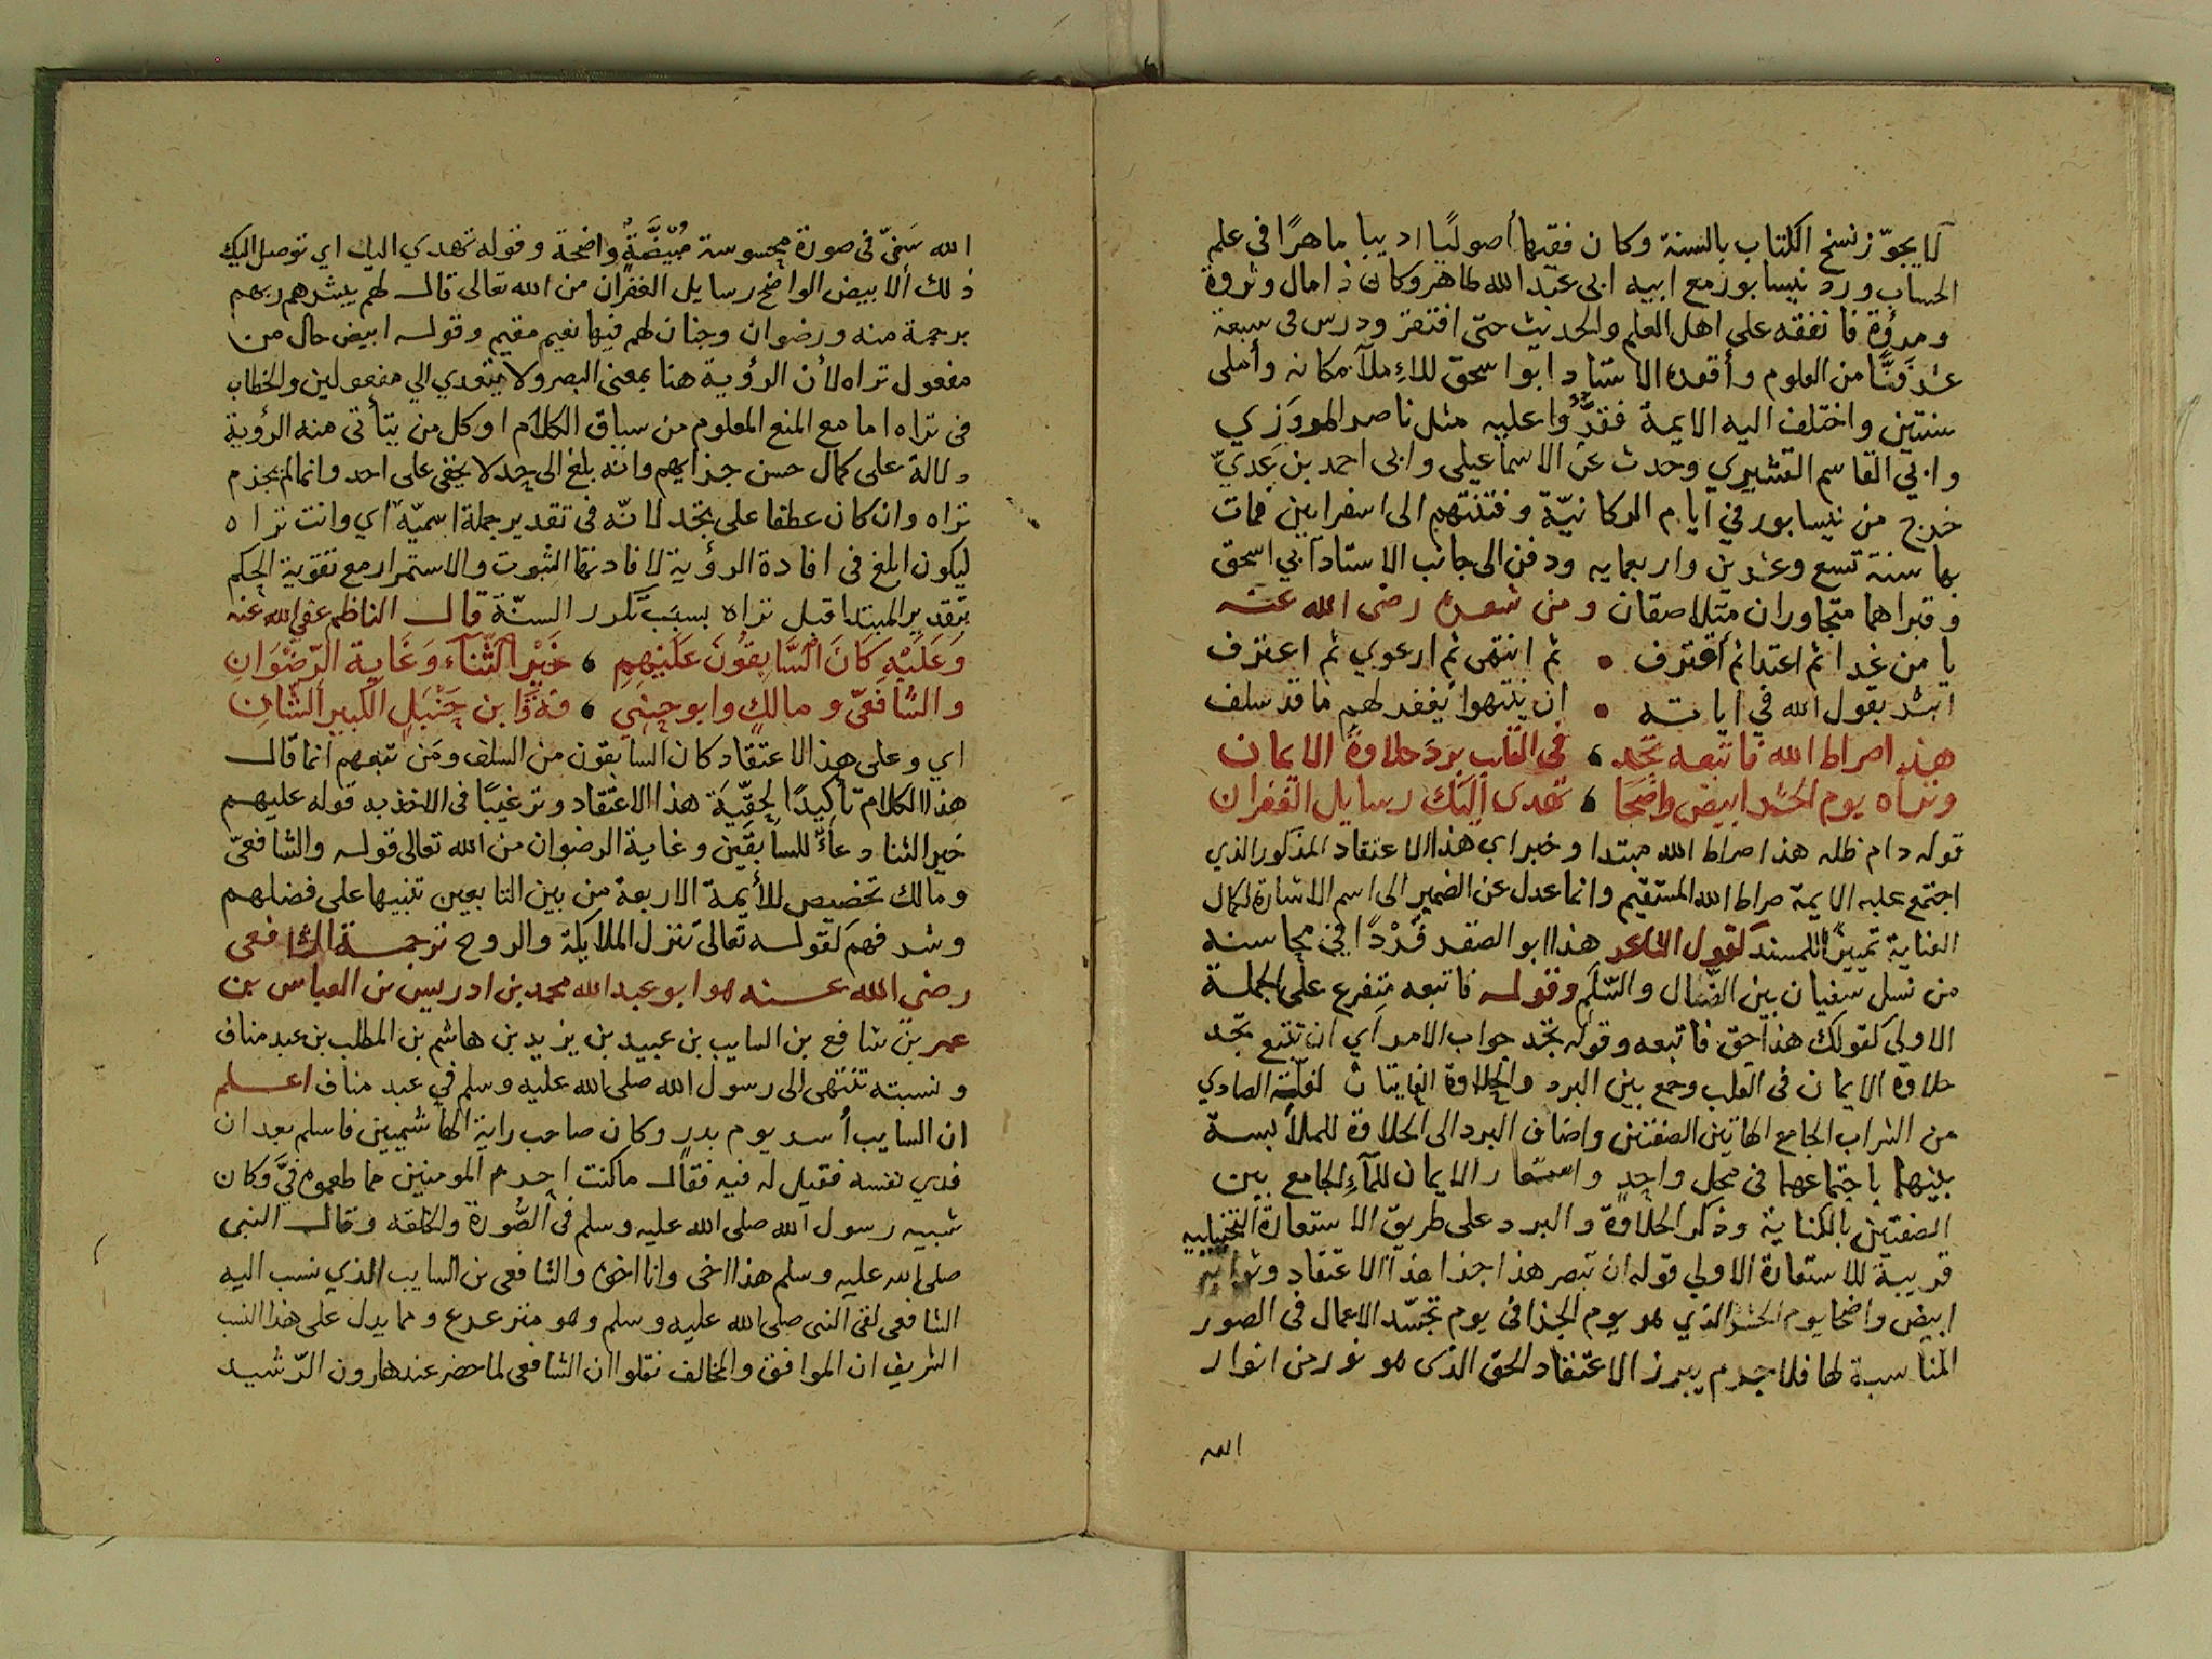 لا يجوّز نسخ الكتاب بالسنة وكان فقيها أصوليًا اديبا ماهرًا فى علم
الحساب ورد نيسابور مع ابيه ابى عبد الله طاهر وكان ذا مال وثروة
ومروّة فانفقه على اهل العلم والحديث حتى افتقر ودرس فى سبعة
عشر فنًّا من العلوم وأقعده الاستاد ابو اسحق للاِملآء مكانه وأملى
سنتين واختلف اليه الايمة فقرؤا عليه مثل ناصر المروَزي
وابي القاسم القشيري وحدث عن الاسماعيلى وابى احمد بن عَديّ
خرج من نيسابور في ايام التركانيّة وفتنتهم الى اسفراين فمات
بها سنة تسع وعشرين واربعمايه ودفن الى جانب الاستاد ابي اسحق
وقبراهما متجاوران متلاصقان ومن شعره رضى الله عنه
يا من غدا ثم اعتدا ثم أقترف • ثم انتهى ثم ارعوي ثم اعترف
ابشر بقول الله في اياته • ان ينتهوا يغفر لهم ما قد سلف
هذا صراط الله فاتبعه تجد ، فى القلب بردَ حلاوة الايمان
وتراه يوم الحشر ابيض واضحَا ، تهدى اليك رسايل الغفران
قوله دام ظله هذا صراط الله مبتدا وخبر اي هذا الاعتقاد المذكور الذي
اجتمع عليه الايمة صراط الله المستقيم وانما عدل عن الضمير الى اسم الاشارة لكمال
العناية تمييزًا للمسند كقول الشاعر هذا ابو الصقر فَرْدًا في محاسنه
من نسل سفيان بين الضال والسّلَم وقوله فاتبعه متفرع على الجملة
الاولى كقولك هذا حق فاتبعه وقوله تجد جواب الامر اي ان تتبع تجد
حلاوة الايمان فى القلب وجمع بين البرد والحلاوة لغلّة الصادي
من الشراب الجامع لهاتين الصفتين واضاف البرد الى الحلاوة للملابسة
بينهما باجتماعهما فى محل واحدٍ واستعار الايمان للمآءِ الجامع بين
الصفتين بالكناية وذكر الحلاوة والبرد على طريق الاستعارة التخييليه
قرينة للاستعارة الاولي قوله ان تبصر هذا جزا هذا الاعتقاد
ابيض واضحا يوم الحشر الذي هو يوم الجزا فى يوم تجسّد الاعمال فى الصور
المناسبة لها فلا جرم يبرز الاعتقاد الحق الذى هو نور من انوار
الله
الله سَنيّ فى صورة محسوسة مُبْيَضَّةٌ واضحة وقوله تهدي اليك اي توصل اليك
ذلك الابيض الواضح رسايل الغفران من الله تعالى قال لهم يبشرهم ربهم
برحمة منه ورضوان وجنات لهم فيها نعيم مقيم وقوله ابيض حال من
مفعول تراه لأن الرؤية هنا بمعنى البصر ولا يتعدي الي مفعولين والخطاب
فى تراه اما مع المنع المعلوم من سياق الكلام او كل من يتأتى منه الرؤية
دلالة على كمال حسن جزايهم وانه بلغ الى حد لا يخفى على احد وانما لم يجزم
تراه وان كان عطفا على تجد لانّه فى تقدير جملة اسميّه اي وانت تراه
ليكون ابلغ فى افادة الرؤية لافادتها الثبوت والاستمرار مع تقوية الحكم
بتقدير المبتدا قبل تراه بسبب تكرر السنّة قال الناظم عفى الله عنه
وَعَلَيْهِ كَانَ السَّابِقُونَ عَلَيْهِمِ ، خَيْرُ الثَّنَاءِ وَغَايةِ الرّضْوَانِ
والشافعيّ ومالكٍ وابو حنيفي ، فةَ وَابن حَنْبَلٍ الكَبِيرِ الشّانِ
اي وعلى هذا الاعتقاد كان السابقون من السلف ومَن تبعهم انما قال
هذا الكلام تأكيدًا لحقّيّة هذا الاعتقاد وترغيبًا فى الاخذ به قوله عليهم
خير الثنا دعاءٌ للسابقين وغاية الرضوان من الله تعالى قوله والشافعيّ
ومالك تخصيص للأيمة الاربعة من بين التابعين تنبيها على فضلهم
وشرفهم كقوله تعالى تنزل الملايكة والروح ترجمة الشافعى
رضى الله عنه هو ابو عبد الله محمد بن ادريس بن العباس بن
عمر بن شافع بن السايب بن عبيد بن يزيد بن هاشم بن المطلب بن عبد مناف
ونسبته تنتهى الى رسول الله صلى الله عليه وسلم في عبد مناف اعلم
ان السايب أسر يوم بدر وكان صاحب راية الهاشميين فاسلم بعد ان
فدي نفسه فقيل له فيه فقال ما كنت احرم المومنين مما طعموه فيَّ وكان
شبيه رسول الله صلى الله عليه وسلم فى الصُّورة والخلقه وقال النبى
صلى الله عليه وسلم هذا اخى وانا اخوه والشافعى بن السايب الذي نسب اليه
الشافعى لقى النبى صلى الله عليه وسلم وهو مترعرع ومما يدل على هذا النسب
الشريف ان الموافق والمخالف نقلوا ان الشافعى لما حضر عند هارون الرّشيد